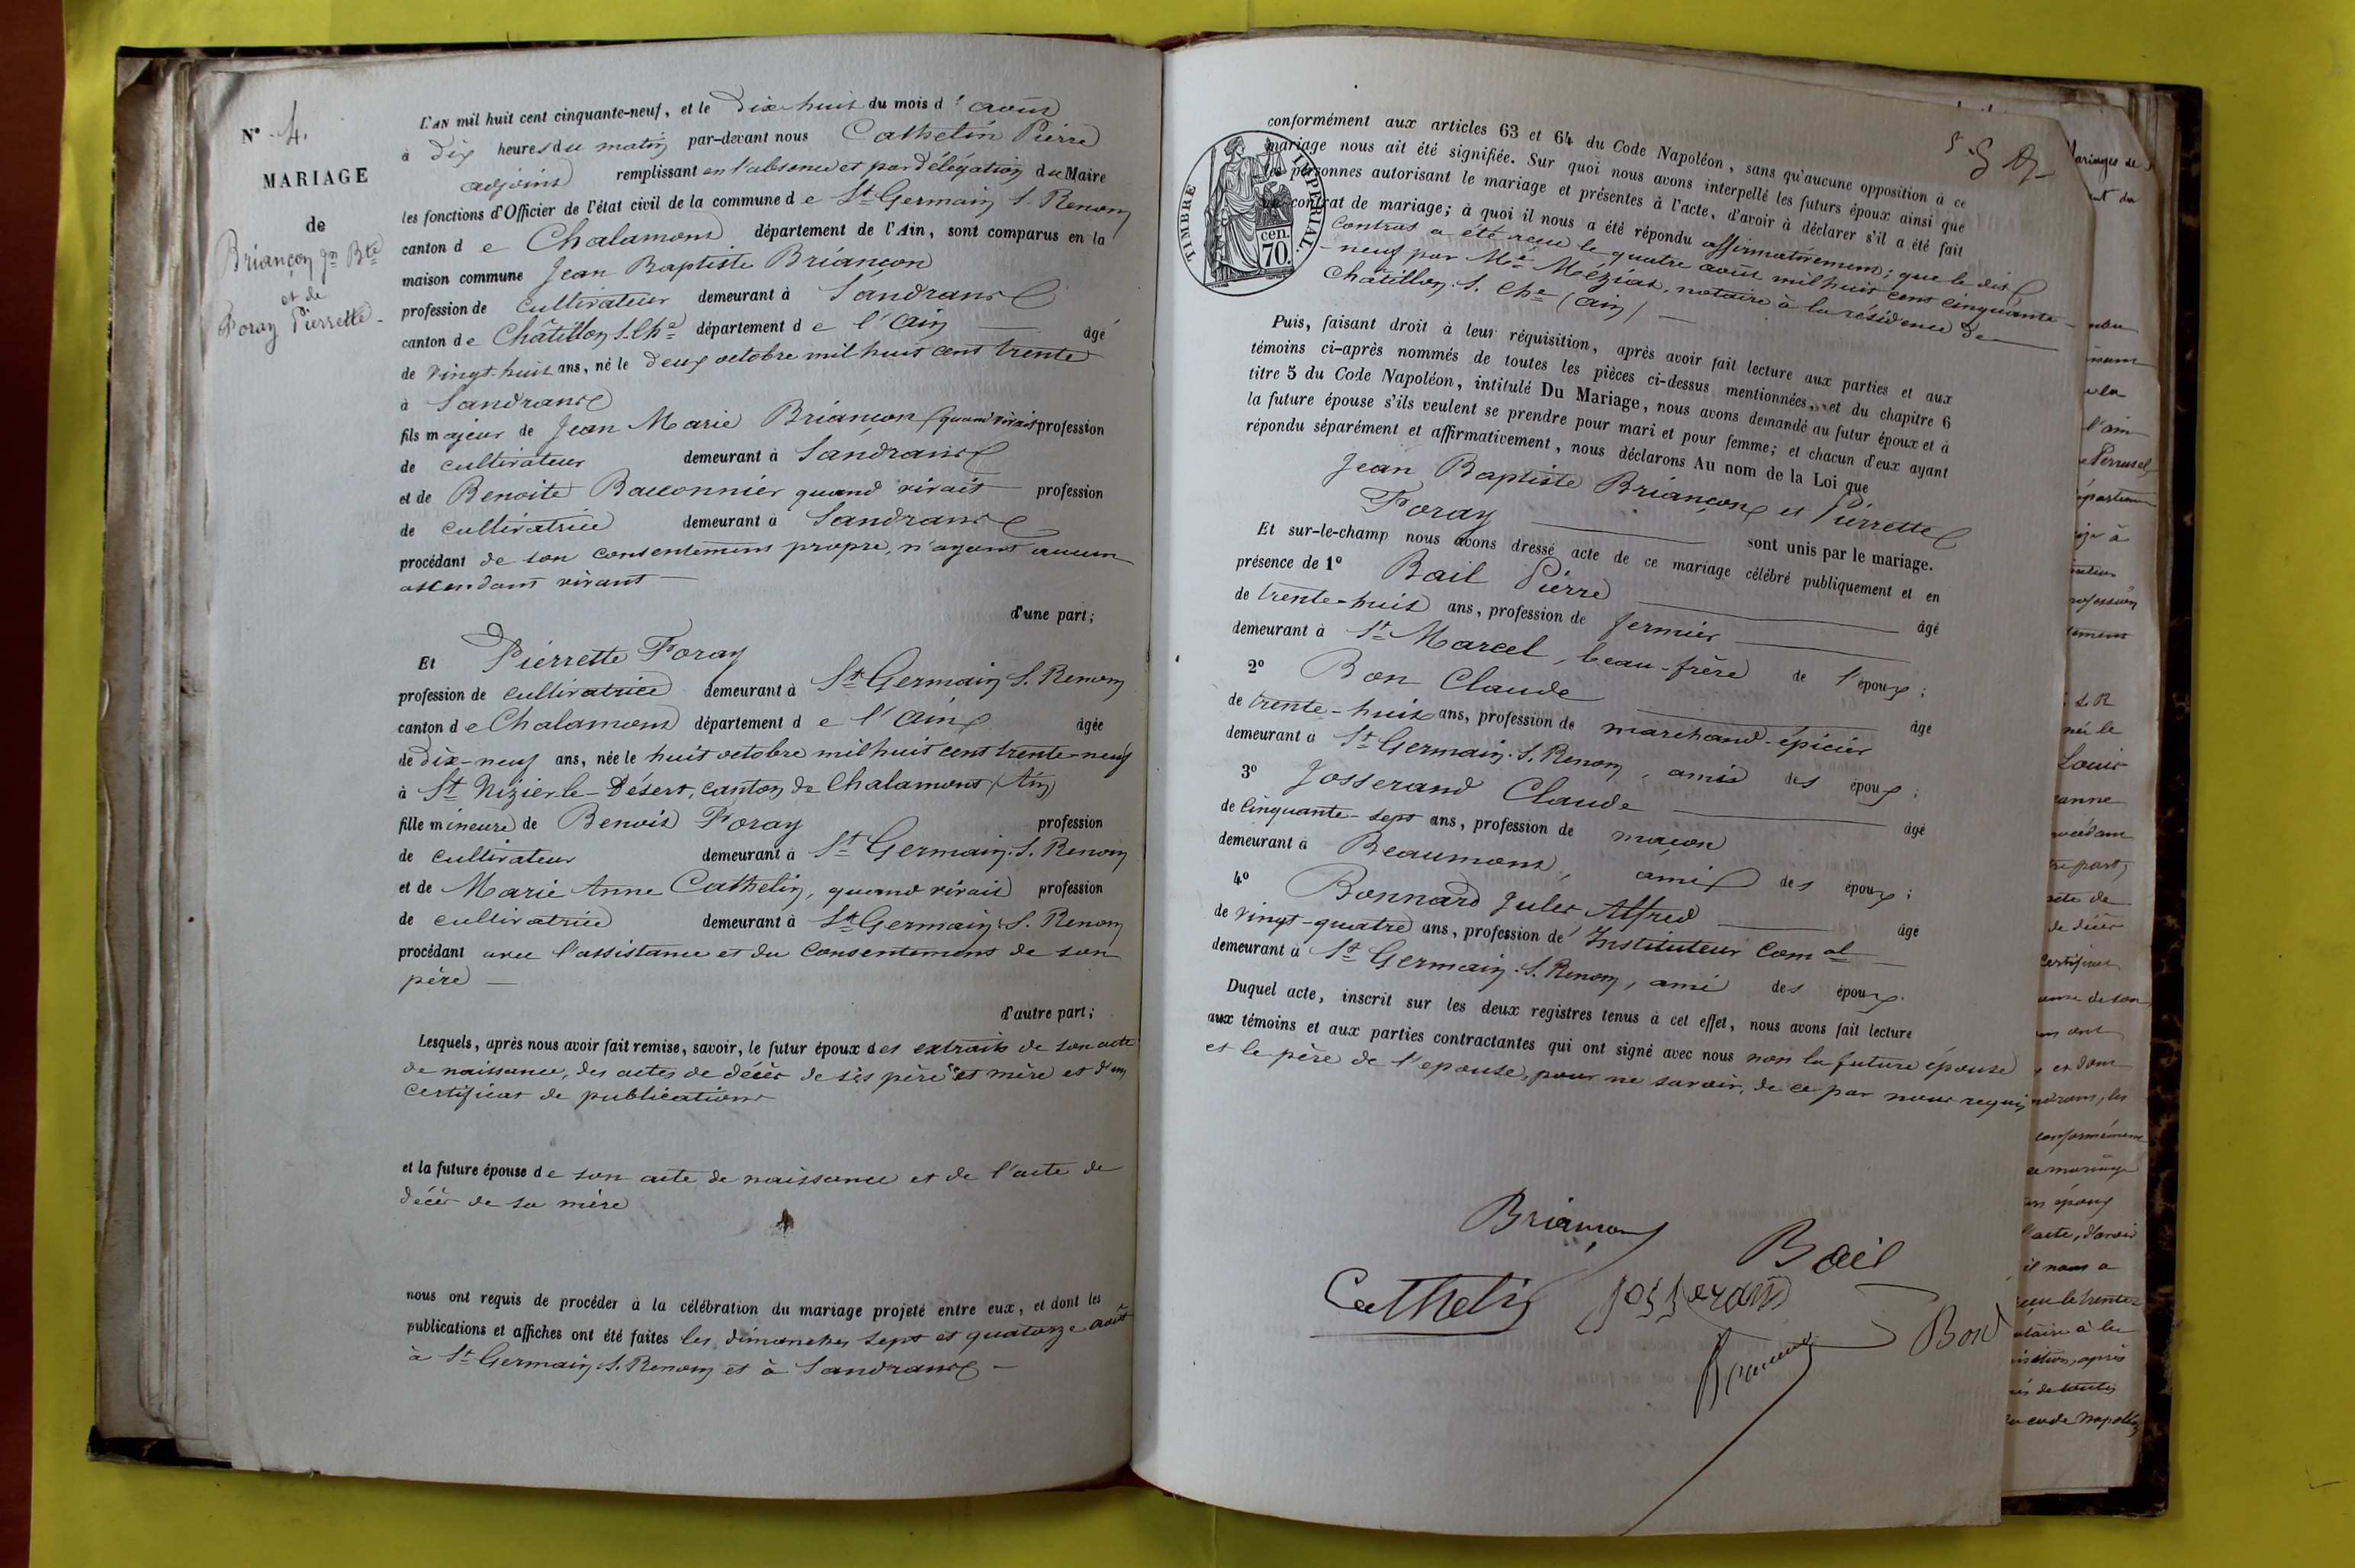 N° 4.
MARIAGE
de
Briançon Jn Bte
et de
Foray Pierrette
L'AN mil huit cent cinquante-neuf, et le Dix huit du mois d'août
à Dix heures du matin par-devant nous Cathelin Pierre
adjoint remplissant en l'absence et par délégation du Maire
les fonctions d'Officier de l'état civil de la commune de St Germain S. Renom
canton de Chalamont département de l'Ain, sont comparus en la
maison commune Jean Baptiste Briançon
profession de cultivateur demeurant à Sandrans
canton de Châtillon S. Che département de l'Ain âgé
de vingt-huit ans, né le deux octobre mil huit cent trente
à Sandrans
fils majeur de Jean Marie Briançon quand vivait profession
de cultivateur demeurant à Sandrans
et de Benoite Baconnier quand vivait profession
de cultivatrice demeurant à Sandrans
procédant de son consentement propre, n'ayant aucun
ascendant vivant
d'une part;
Et Pierrette Foray
profession de cultivatrice demeurant à St Germain S. Renom
canton de Chalamont département de l'Ain âgée
de dix-neuf ans, née le huit octobre mil huit cent trente-neuf
à St Nizier-le-Désert, canton de Chalamont (Ain)
fille mineure de Benoit Foray profession
de cultivateur demeurant à St Germain. S. Renom
et de Marie Anne Cathelin, quand vivait profession
de cultivatrice demeurant à St Germain. S. Renom
procédant avec l'assistance et du consentement de son
père
d'autre part;
Lesquels, après nous avoir fait remise, savoir, le futur époux des extraits de son acte
de naissance, des actes de décès de ses père et mère et d'un
certificat de publications
et la future épouse de son acte de naissance et de l'acte de
décès de sa mère
nous ont requis de procéder à la célébration du mariage projeté entre eux, et dont les
publications et affiches ont été faites les dimanches sept et quatorze août
à St Germain. S. Renom et à Sandrans
conformément aux articles 63 et 64 du Code Napoléon, sans qu'aucune opposition à ce
mariage nous ait été signifiée. Sur quoi nous avons interpellé les futurs époux ainsi que
les personnes autorisant le mariage et présentes à l'acte, d'avoir à déclarer s'il a été fait
un contrat de mariage; à quoi il nous a été répondu affirmativement; que le dit
Contrat a été reçu le quatre août mil huit cent cinquante-
-neuf par Me Méziat, notaire à la résidence de
Châtillon. S. Che (Ain)
TIMBRE IMPÉRIAL.
70. cen.
Puis, faisant droit à leur réquisition, après avoir fait lecture aux parties et aux
témoins ci-après nommés de toutes les pièces ci-dessus mentionnées, et du chapitre 6
titre 5 du Code Napoléon, intitulé Du Mariage, nous avons demandé au futur époux et à
la future épouse s'ils veulent se prendre pour mari et pour femme; et chacun d'eux ayant
répondu séparément et affirmativement, nous déclarons Au nom de la Loi que
Jean Baptiste Briançon et Pierrette
Foray sont unis par le mariage.
Et sur-le-champ nous avons dressé acte de ce mariage célébré publiquement et en
présence de 1° Bail Pierre âgé
de trente-huit ans, profession de fermier
demeurant à St Marcel, beau-frère de l'époux;
2° Bon Claude âgé
de trente-huit ans, profession de marchand-épicier
demeurant à St Germain. S. Renom, ami des époux;
3° Josserand Claude âgé
de cinquante-sept ans, profession de maçon
demeurant à Beaumont, ami des époux;
4° Bonnard Jules Alfred âgé
de vingt-quatre ans, profession de Instituteur Comal
demeurant à St Germain. S. Renom, ami des époux.
Duquel acte, inscrit sur les deux registres tenus à cet effet, nous avons fait lecture
aux témoins et aux parties contractantes qui ont signé avec nous non la future épouse
et le père de l'épouse, pour ne savoir, de ce par nous requis
Briançon
Bail
Cathelin Josserand
Bon